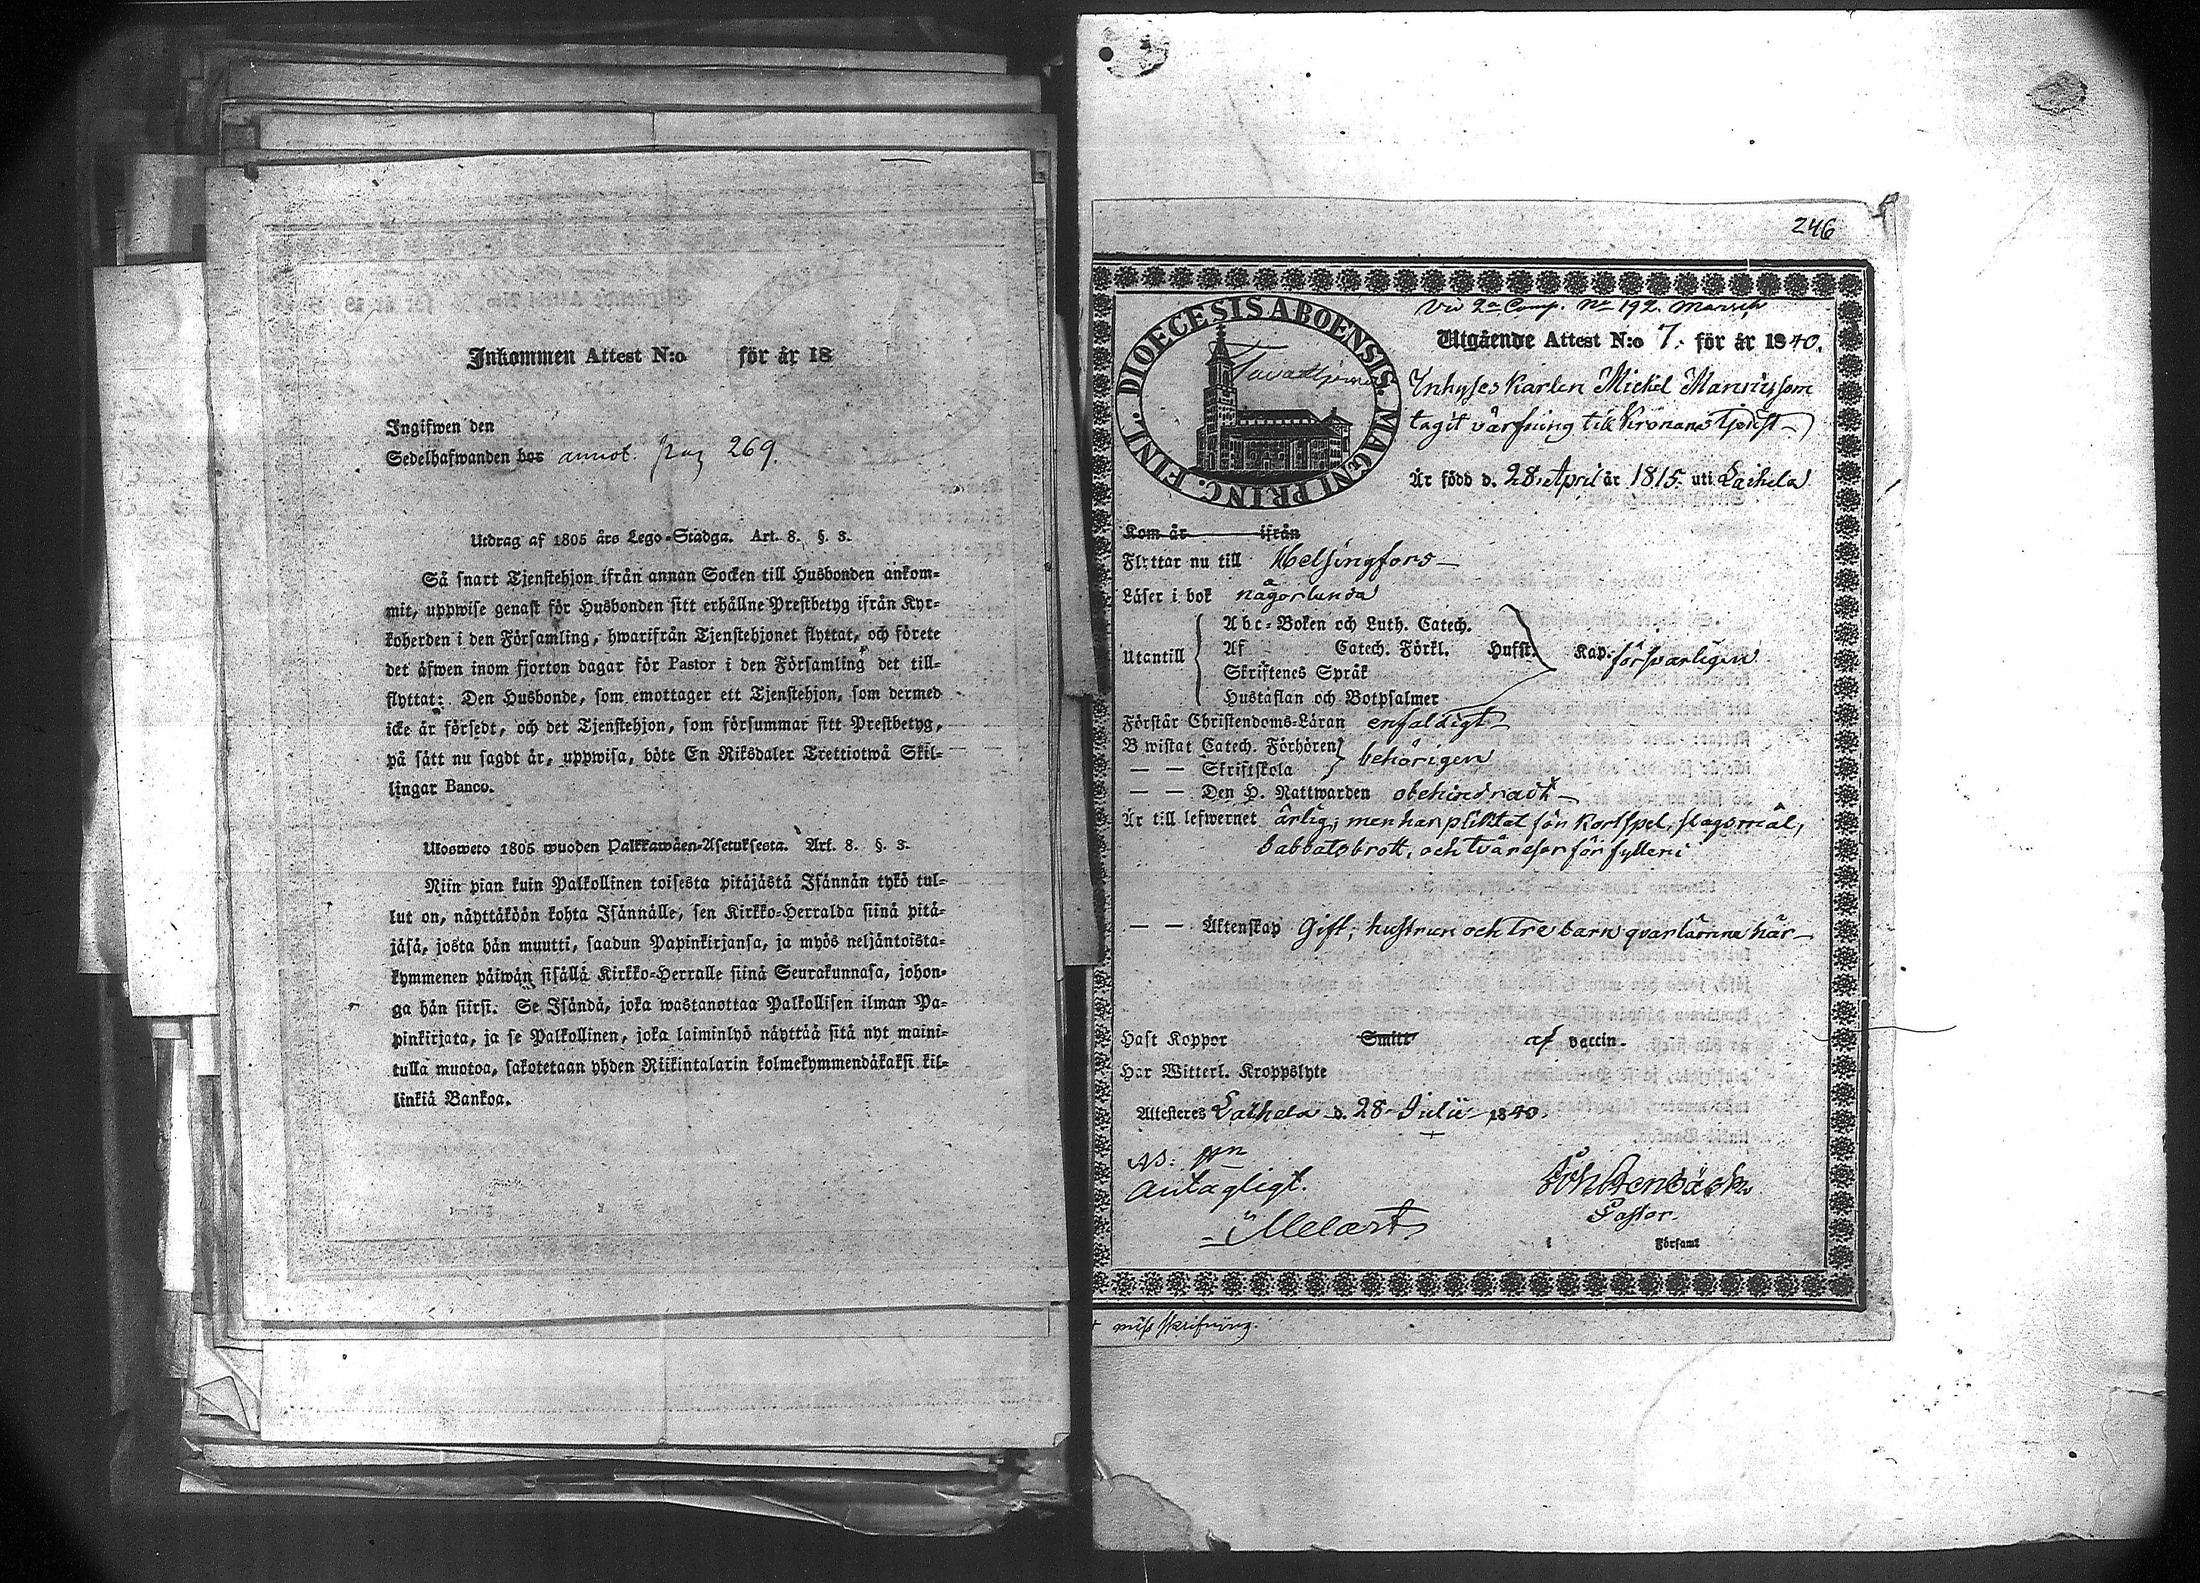 Inkommen Attest N:o för år 18
Ingifwen den
Sedelhafwanden bor annot. pag 269.
Utdrag af 1805 års Lego-Stadga. Art. 8. §. 3.
Så snart Tjenstehjon ifrån annan Socken till Husbonden ankom-
mit, uppwise genast för Husbonden sitt erhållne Prestbetyg ifrån Kyr-
koherden i den Församling, hwarifrån Tjenstehjonet flyttat, och förete
det äfwen inom fjorton dagar för Pastor i den Församling det till-
flyttat: Den Husbonde, som emottager ett Tjenstehjon, som dermed
icke är försedt, och det Tjenstehjon, som försummar sitt Prestbetyg,
på sätt nu sagdt är, uppwisa, böte En Riksdaler Trettiotwå Skil-
lingar Banco.
Ulosweto 1805 wuoden Palkkawäen-Asetuksesta. Art. 8. §. 3.
Niin pian kuin Palkollinen toisesta pitäjästä Isännän tykö tul-
lut on, näyttäköön kohta Isännälle, sen Kirkko-Herralda siinä pitä-
jäsä, josta hän muutti, saadun Papinkirjansa, ja myös neljäntoista-
kymmenen päiwän sisällä Kirkko-Herralle siinä Seurakunnasa, johon-
ga hän siirsi. Se Isändä, joka wastanottaa Palkollisen ilman Pa-
pinkirjata, ja se Palkollinen, joka laiminlyö näyttää sitä nyt maini-
tulla muotoa, sakotetaan yhden Riikintalarin kolmekymmendäkaksi kil-
linkiä Bankoa.
246
Vid 2a Comp. No 192. Marsch
DIOECESIS ABOENSIS. MAGNI PRINC. FINL.
Utgående Attest N:o 7. för år 1840.
Inhyses karlen Mickel Mansson
tagit värfning till Kronans tjenst
Är född d. 28. April år 1815. uti Laihela
Kom år ifrån
Flyttar nu till Helsingfors
Läser i bok någorlunda
Abc-Boken och Luth. Catech.
Utantill Af Catech. Förkl. Hust. Kap. försvarligen
Skriftenes Språk
Hustaflan och Botpsalmer
Förstår Christendoms-Läran enfaldigt
B wistat Catech. Förhören behörigen
— — Skriftskola
— — Den H. Nattwarden obehindradt
Är till lefwernet ärlig; men har pliktat för kortspel, slagsmål,
Sabbatsbrott, och tvänne for för fylleri
— — Äktenskap Gift; hustrun och Tre barn qvarlämna här
Haft Koppor Smitt af vaccin.
Har Witterl. Kroppslyte
Attesteres Laihela d. 28 Julii 1840.
Antagligt.
Melart
Joh Stenbäck
Pastor.
i Församl
+ misskrifning.